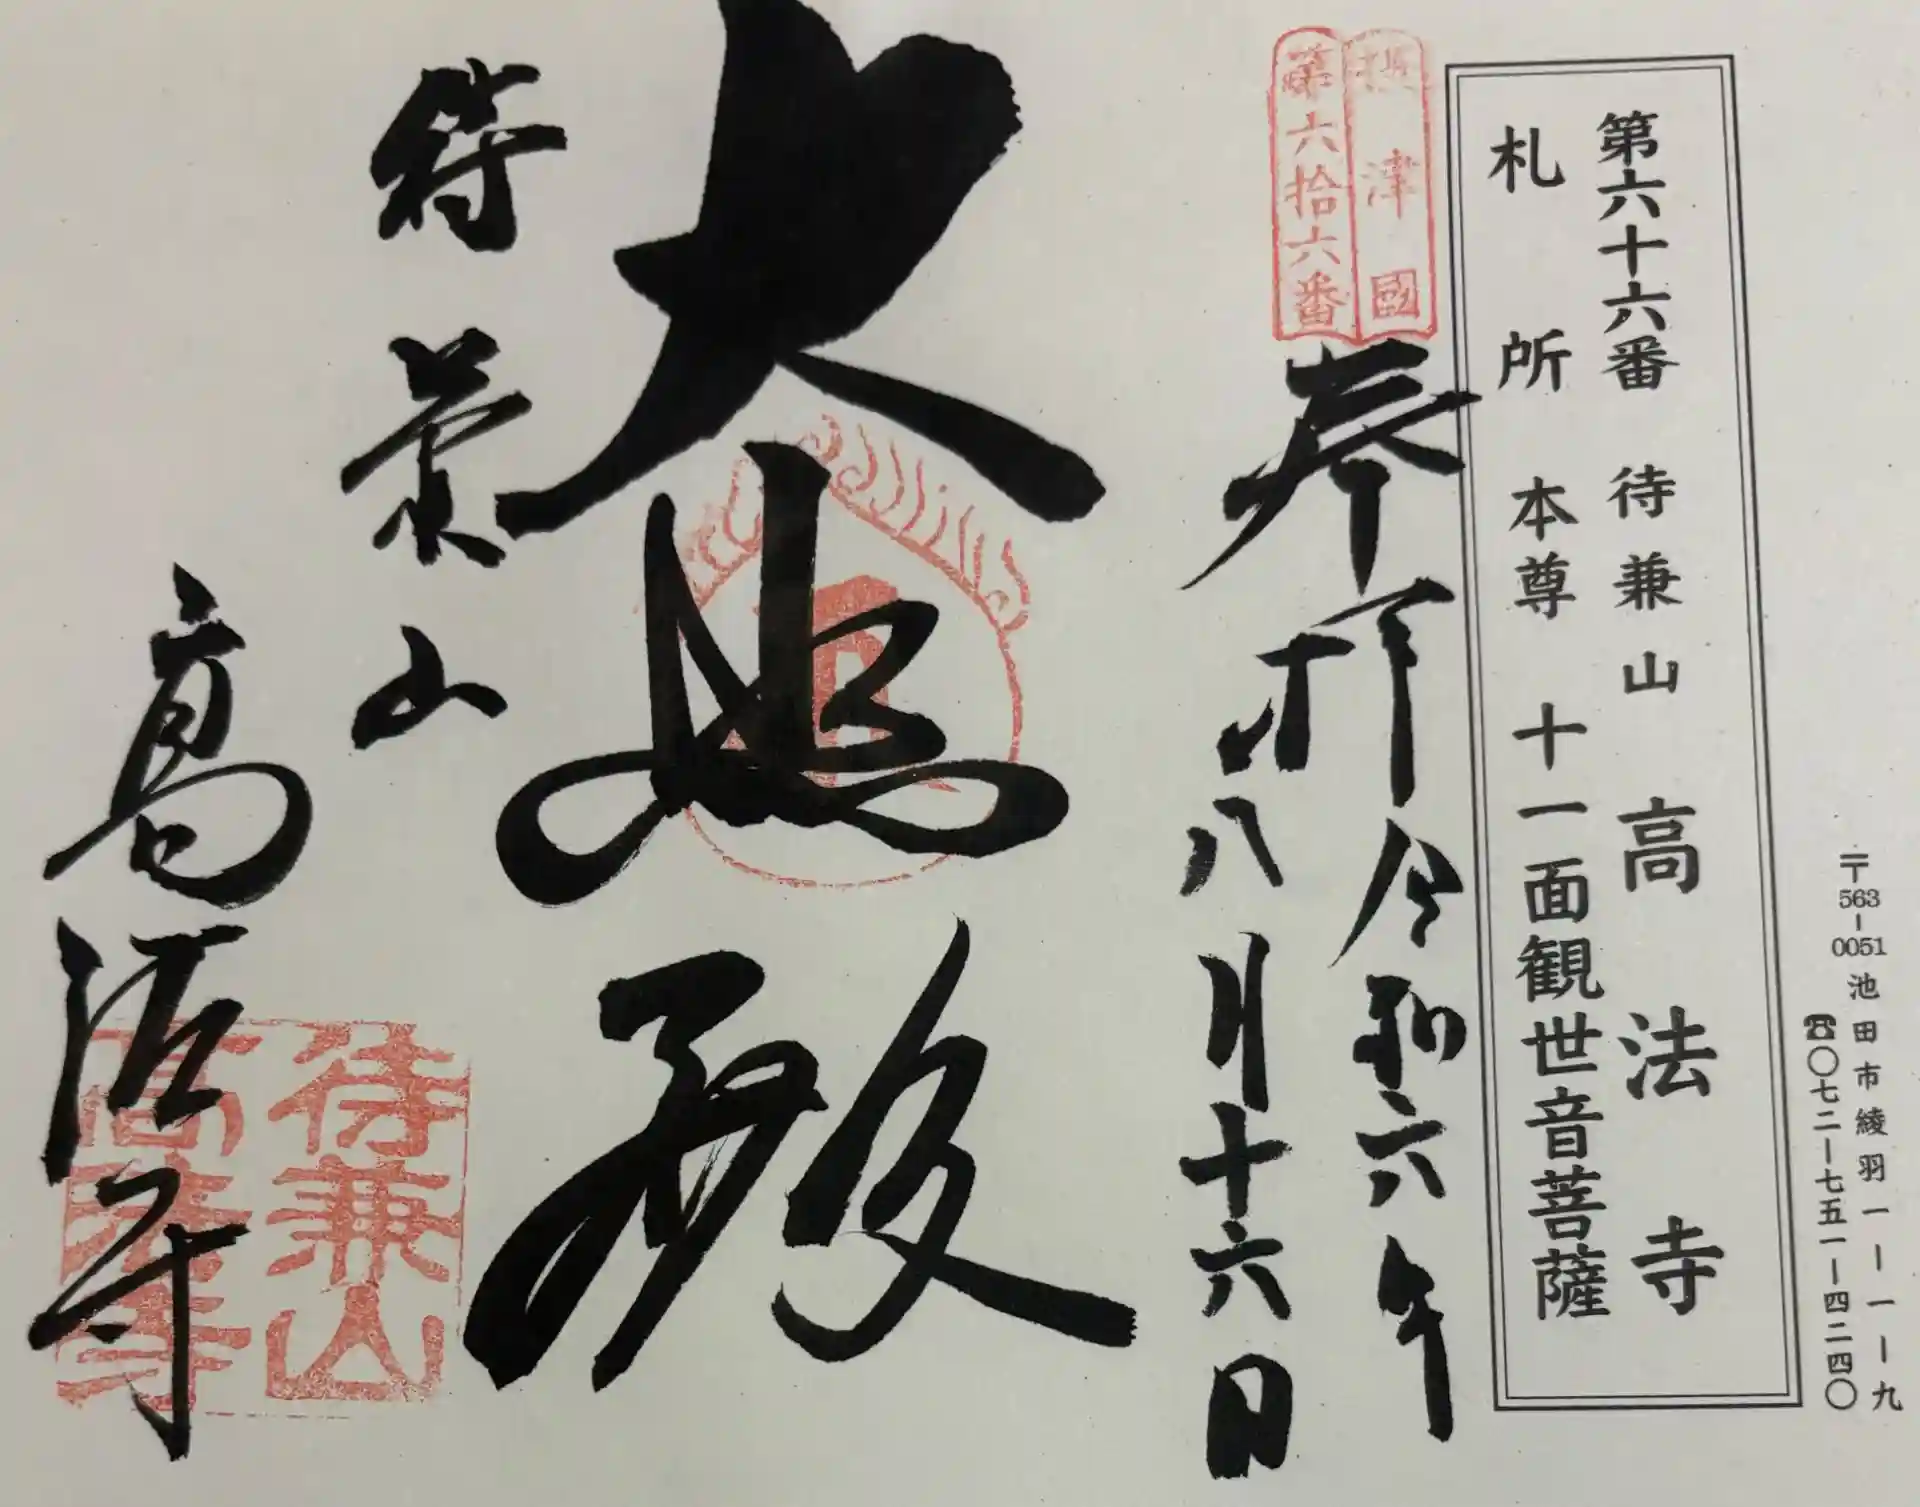 〒563-0051 池田市綾羽一ー一ー九
☎〇七二ー七五一ー四二四〇
第六十六番 待兼山 高法寺
札所 本尊 十一面観世音菩薩
摂津國
第六拾六番
奉拝
令和六年
八月十六日
大悲殿
待兼山
高法寺
待兼山
高法寺